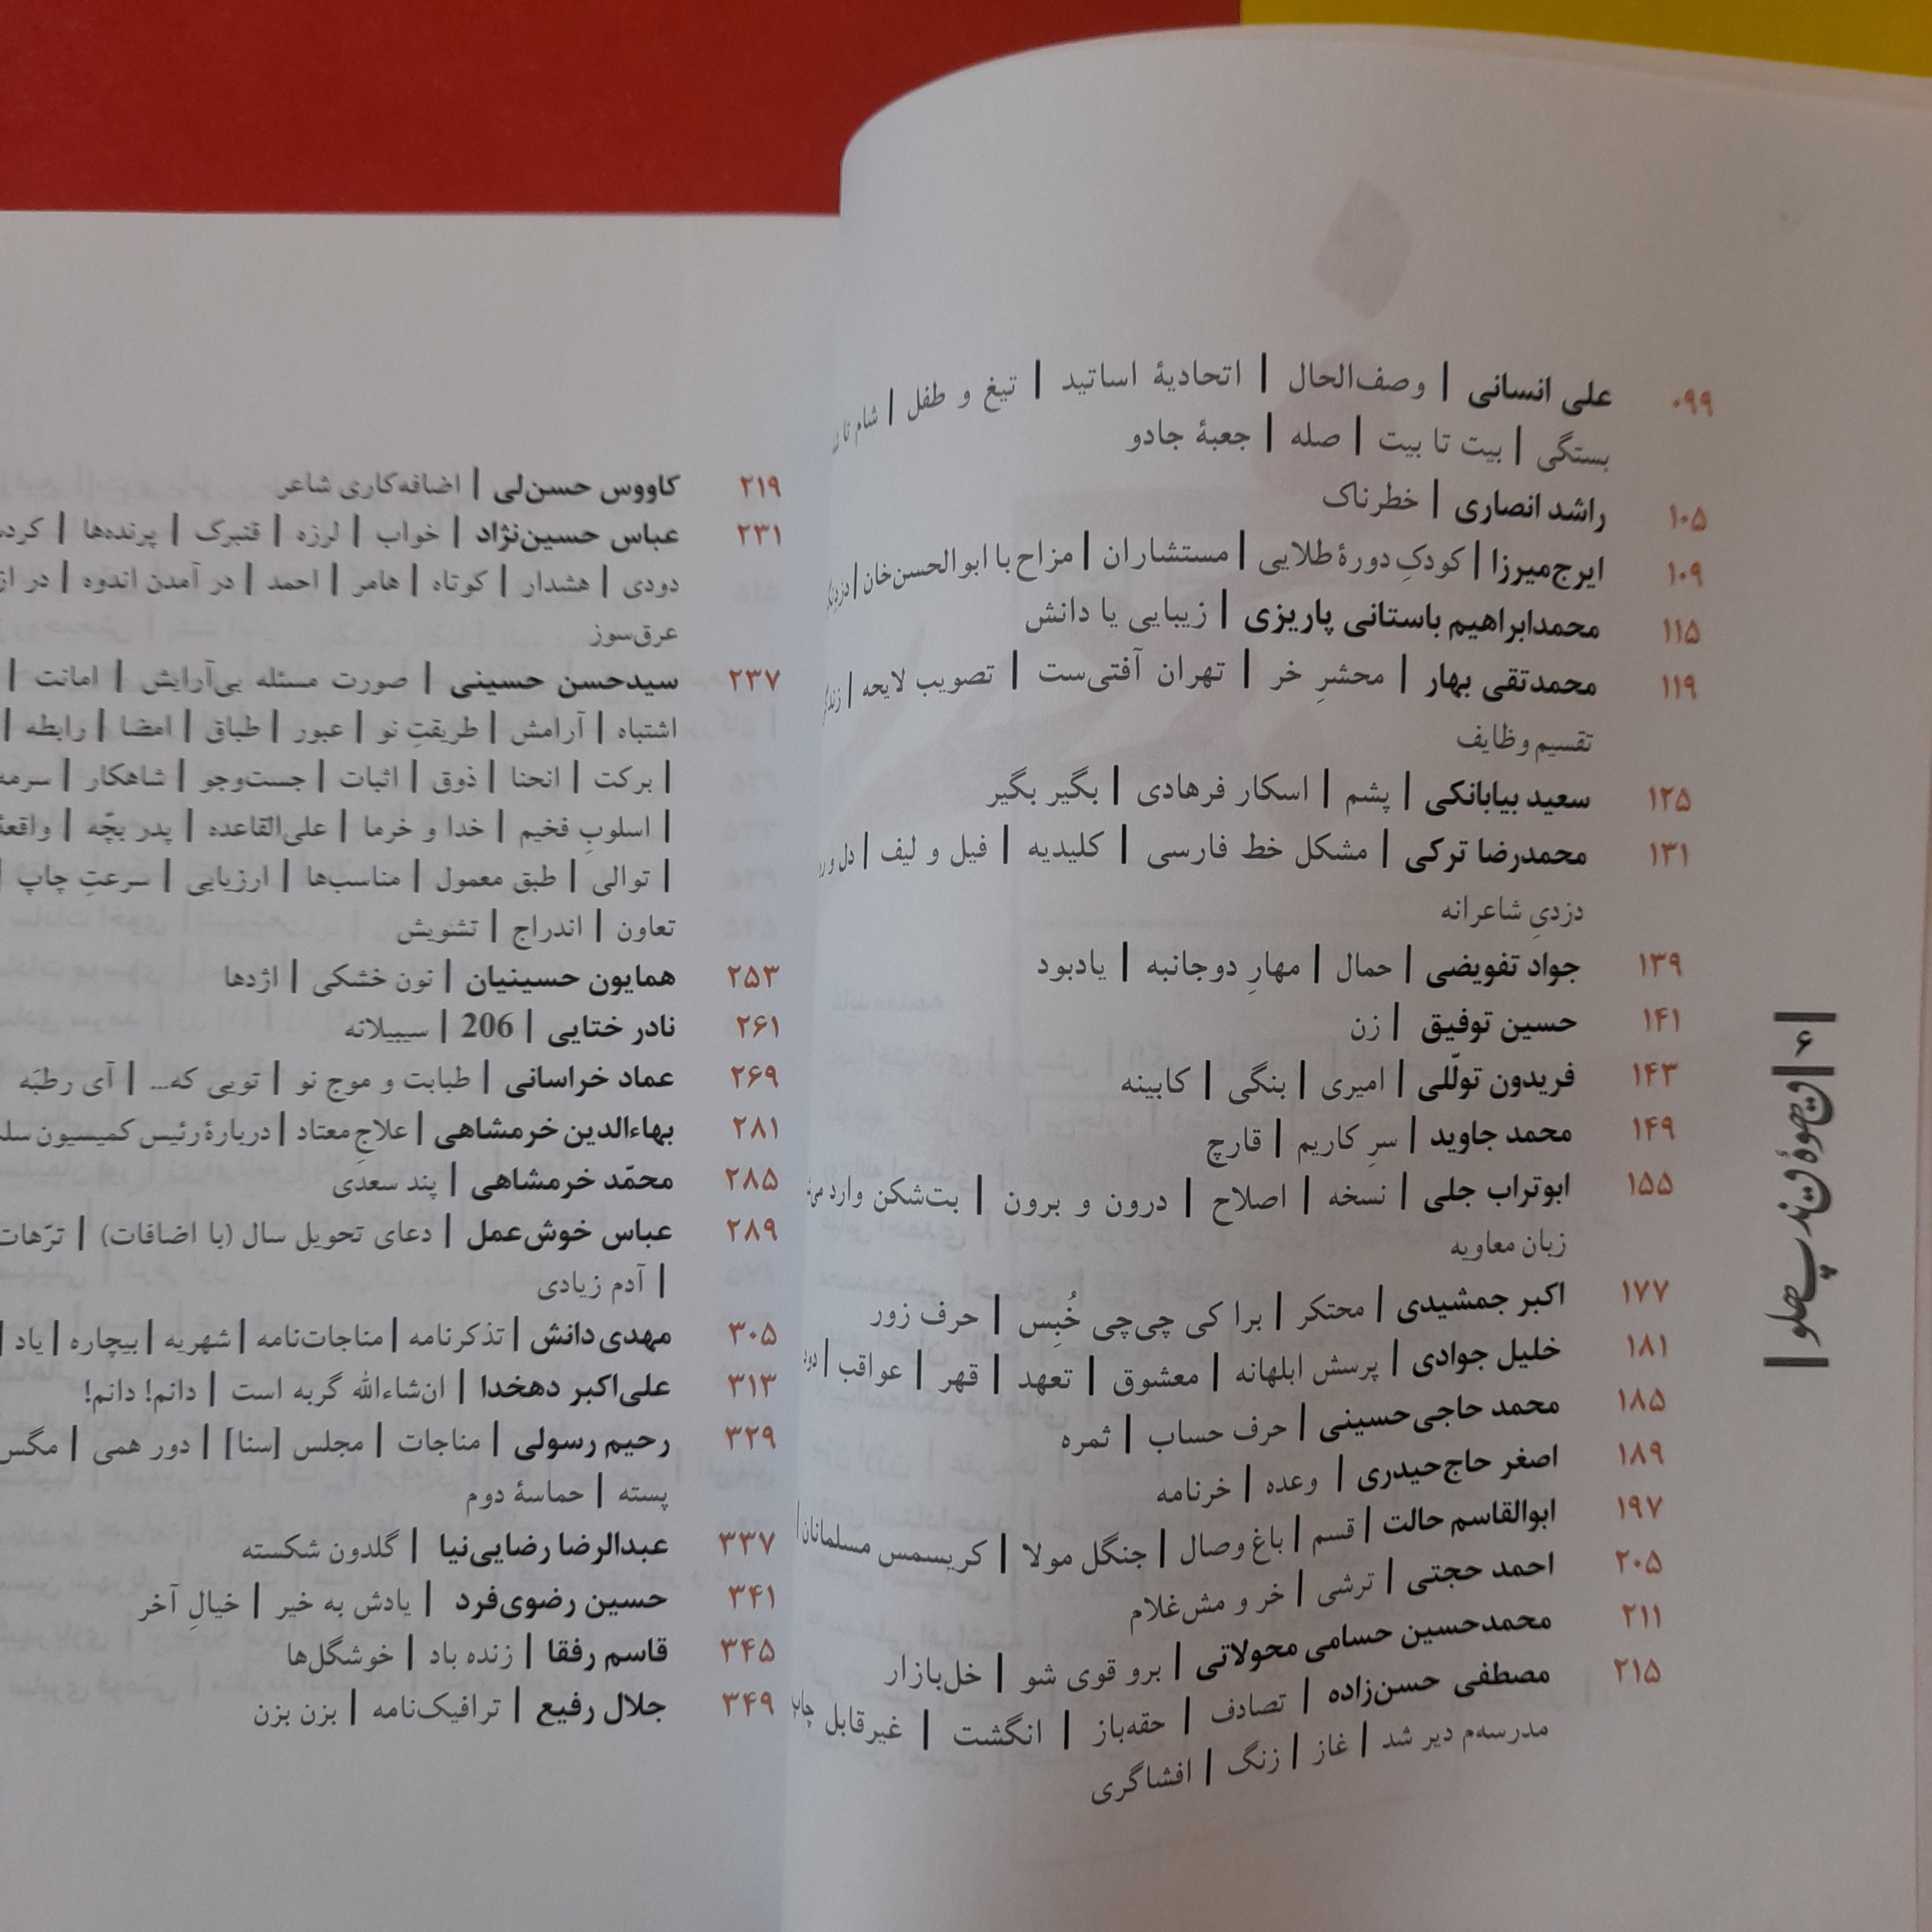 ۰۹۹ علی انسانی | وصف‌الحال | اتحادیهٔ اساتید | تیغ و طفل | شام تا
بستگی | بیت تا بیت | صله | جعبهٔ جادو
۱۰۵ راشد انصاری | خطرناک
۱۰۹ ایرج‌میرزا | کودکِ دورهٔ طلایی | مستشاران | مزاح با ابوالحسن‌خان |
۱۱۵ محمدابراهیم باستانی پاریزی | زیبایی یا دانش
۱۱۹ محمدتقی بهار | محشرِ خر | تهران آفتی‌ست | تصویب لایحه |
تقسیم وظایف
۱۲۵ سعید بیابانکی | پشم | اسکار فرهادی | بگیر بگیر
۱۳۱ محمدرضا ترکی | مشکل خط فارسی | کلیدیه | فیل و لیف | دل و
دزدیِ شاعرانه
۱۳۹ جواد تفویضی | حمال | مهارِ دوجانبه | یادبود
۱۴۱ حسین توفیق | زن
۱۴۳ فریدون تولّلی | امیری | بنگی | کابینه
۱۴۹ محمد جاوید | سرِ کاریم | قارچ
۱۵۵ ابوتراب جلی | نسخه | اصلاح | درون و برون | بت‌شکن وارد
زبان معاویه
۱۷۷ اکبر جمشیدی | محتکر | برا کی چی‌چی خُبِس | حرف زور
۱۸۱ خلیل جوادی | پرسش ابلهانه | معشوق | تعهد | قهر | عواقب |
۱۸۵ محمد حاجی‌حسینی | حرف حساب | ثمره
۱۸۹ اصغر حاج‌حیدری | وعده | خرنامه
۱۹۷ ابوالقاسم حالت | قسم | باغ وصال | جنگل مولا | کریسمس مسلمانان |
۲۰۵ احمد حجتی | ترشی | خر و مش‌غلام
۲۱۱ محمدحسین حسامی محولاتی | برو قوی شو | خل‌بازار
۲۱۵ مصطفی حسن‌زاده | تصادف | حقه‌باز | انگشت | غیرقابل
مدرسه‌م دیر شد | غاز | زنگ | افشاگری
۶
۲۱۹ کاووس حسن‌لی | اضافه‌کاری شاعر
۲۳۱ عباس حسین‌نژاد | خواب | لرزه | قنبرک | پرنده‌ها |
دودی | هشدار | کوتاه | هامر | احمد | در آمدن اندوه |
عرق‌سوز
۲۳۷ سیدحسن حسینی | صورت مسئله بی‌آرایش | امانت |
اشتباه | آرامش | طریقتِ نو | عبور | طباق | امضا | رابطه |
| برکت | انحنا | ذوق | اثبات | جست‌وجو | شاهکار |
| اسلوبِ فخیم | خدا و خرما | علی‌القاعده | پدر بچّه |
| توالی | طبق معمول | مناسب‌ها | ارزیابی | سرعتِ چاپ |
تعاون | اندراج | تشویش
۲۵۳ همایون حسینیان | نون خشکی | اژدها
۲۶۱ نادر ختایی | 206 | سیبیلانه
۲۶۹ عماد خراسانی | طبابت و موج نو | تویی که... | آی رطبَه
۲۸۱ بهاءالدین خرمشاهی | علاجِ معتاد | دربارهٔ رئیس کمیسیون
۲۸۵ محمّد خرمشاهی | پند سعدی
۲۸۹ عباس خوش‌عمل | دعای تحویل سال (با اضافات) | ترّهات
| آدم زیادی
۳۰۵ مهدی دانش | تذکرنامه | مناجات‌نامه | شهریه | بیچاره | یاد |
۳۱۳ علی‌اکبر دهخدا | ان‌شاءالله گربه است | دانم! دانم!
۳۲۹ رحیم رسولی | مناجات | مجلس [سنا] | دور همی | مگس
پسته | حماسهٔ دوم
۳۳۷ عبدالرضا رضایی‌نیا | گلدون شکسته
۳۴۱ حسین رضوی‌فرد | یادش به خیر | خیالِ آخر
۳۴۵ قاسم رفقا | زنده باد | خوشگل‌ها
۳۴۹ جلال رفیع | ترافیک‌نامه | بزن بزن